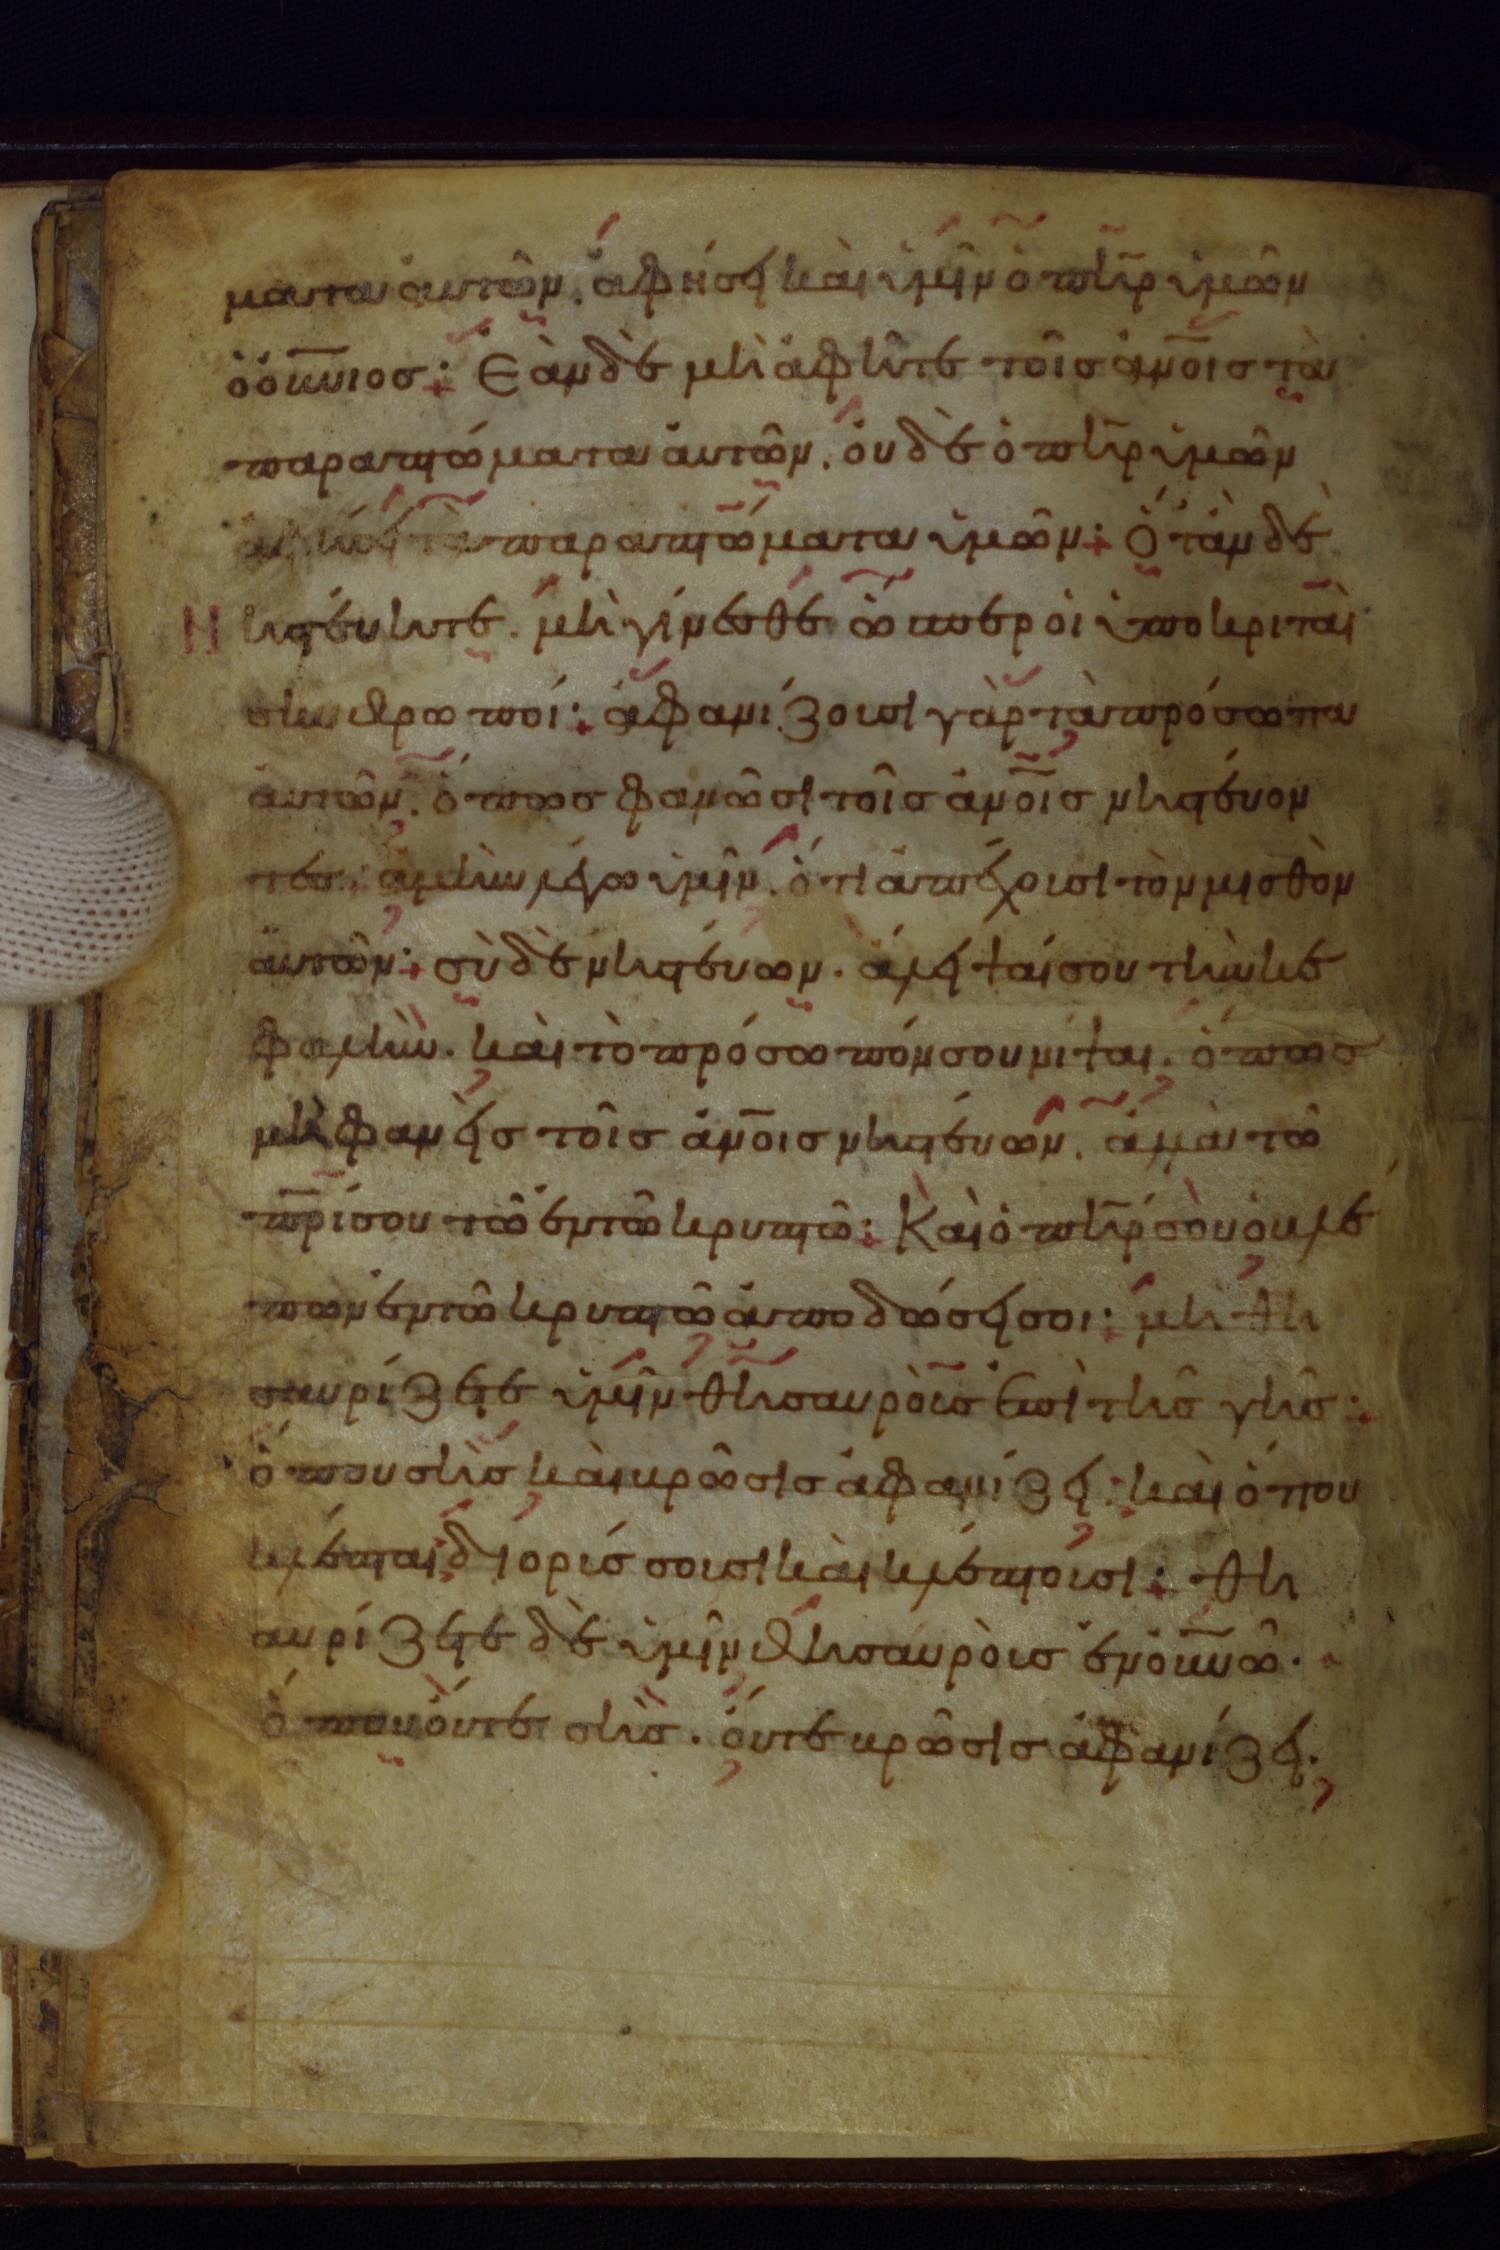 ματα αυτῶν. ἀφήσει καὶ ὑμῖν ὁ π̅η̅ρ̅ ὑμῶν
ὁ ο̅υ̅ν̅ιος: Ἐὰν δὲ μὴ ἀφῆτε τοῖς ἀν̅ο̅ις τὰ
παραπτώματα ἀυτῶν. ὀυδὲ ὁ π̅η̅ρ̅ ὑμῶν
ἀφήσει τὰ παραπτώματα ὑμῶν: Ὅταν δὲ
Ν ηστέυητε. μὴ γίνεσθε ὥσπερ ὁι ὑποκριταὶ
σκυθρωποί: ἀφανίζουσι γὰρ τὰ πρόσωπα
ἀυτῶν. ὅπως φανῶσι τοῖς ἀν̅ο̅ις νηστέυον
τες. ἀμὴν λέγω ὑμῖν. ὅτι ἀπέχουσι τὸν μισθὸν
ἀυτῶν: σὺ δὲ νηστέυων. ἄλειψαί σου τὴν κε
φαλὴν. καὶ τὸ πρόσωπόν σου νίψαι. ὅπως
μὴ φανῆς τοῖς ἀν̅ο̅ις νηστέυων. ἀλλὰ τῶ
π̅ρ̅ί σου τῶ ἐν τῶ κρυπτῶ: Καὶ ὁ π̅η̅ρ̅ σου ὁ βλέ
πων ἐν τῶ κρυπτῶ ἀποδώσει σοι: μὴ θη
σαυρίζετε ὑμῖν θησαυρὸυς ἐπὶ τῆς γῆς:
ὅπου σὴς καὶ βρῶσις ἀφανίζει: καὶ ὅπου
κλέπται διορύσσουσι καὶ κλέπτουσι: θη
αυρίζετε δὲ ὑμῖν θησαυρὸυς ἐν ὀυ̅ν̅ῶ.
ὅπου ὄυτε σὴς. ὄυτε βρῶσις ἀφανίζει.